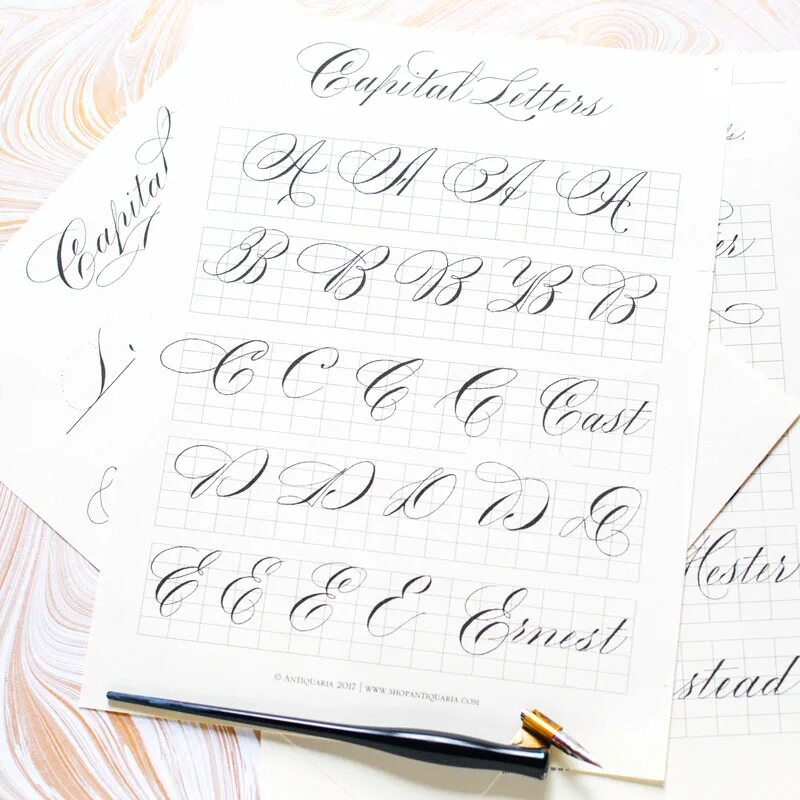 Capital Letters
A A A A
B B B B B
C C C C Cast
D D D D D
E E E E Ernest
© ANTIQUARIA 2017 | WWW.SHOPANTIQUARIA.COM
Capital
&
Hester
stead